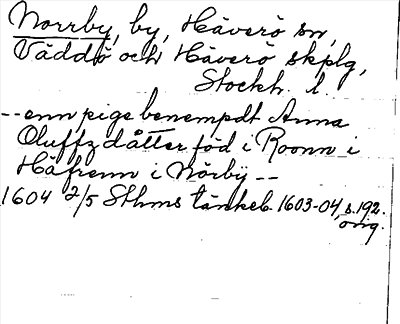 Norrby, by, Häverö sn,
Väddö och Häverö skplg,
Stockh. l.
-- enn pige benempdt Anna
Oluffz dåtter föd i Roonn i
Häfrenn i Nörby --
1604 2/5 Sthms tänkeb. 1603-04, s. 192.
orig.